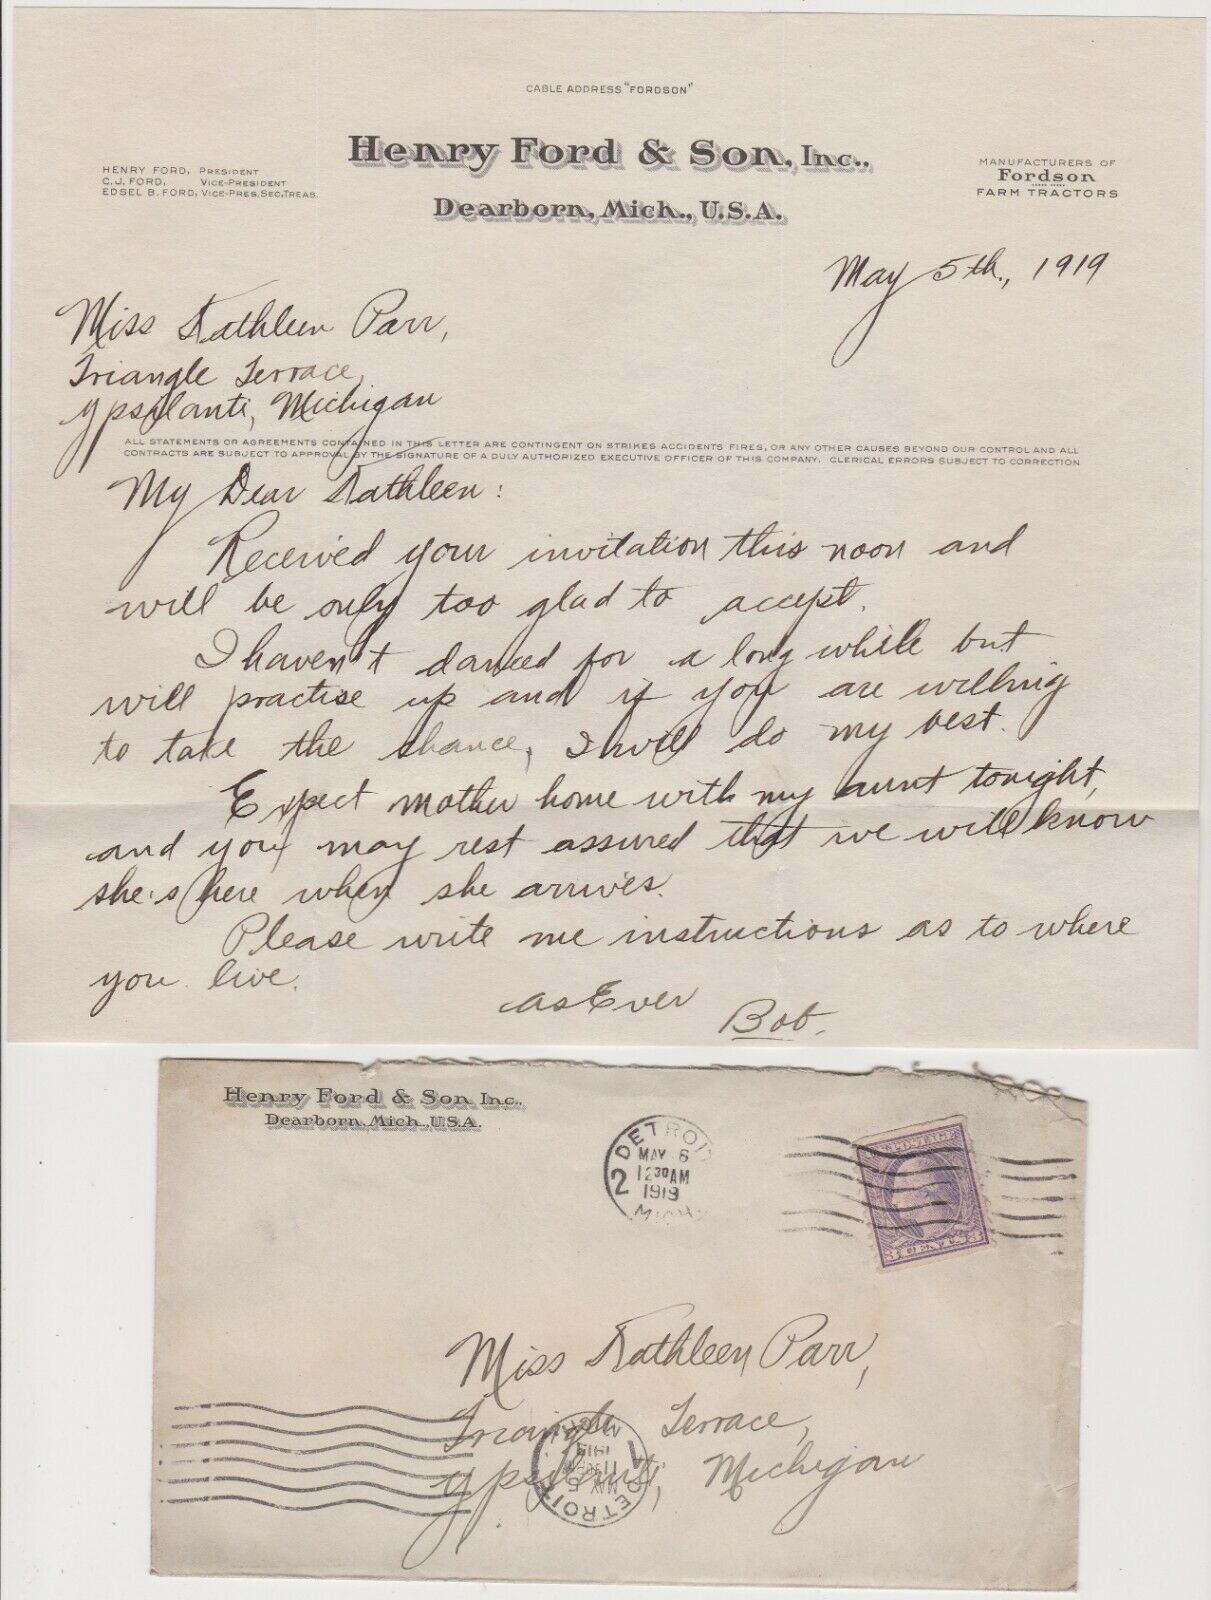 CABLE ADDRESS "FORDSON"
Henry Ford & Son, Inc.,
Dearborn, Mich., U.S.A.
HENRY FORD, PRESIDENT
C.J. FORD, VICE-PRESIDENT
EDSEL B. FORD, VICE-PRES. SEC. TREAS.
MANUFACTURERS OF
Fordson
FARM TRACTORS
May 5th., 1919
Miss Kathleen Parr,
Triangle Terrace,
Ypsilanti, Michigan
ALL STATEMENTS OR AGREEMENTS CONTAINED IN THIS LETTER ARE CONTINGENT ON STRIKES ACCIDENTS FIRES, OR ANY OTHER CAUSES BEYOND OUR CONTROL AND ALL
CONTRACTS ARE SUBJECT TO APPROVAL BY THE SIGNATURE OF A DULY AUTHORIZED EXECUTIVE OFFICER OF THIS COMPANY. CLERICAL ERRORS SUBJECT TO CORRECTION
My Dear Kathleen:
Received your invitation this noon and
will be only too glad to accept.
I haven't danced for a long while but
will practise up and if you are willing
to take the chance, I will do my best.
Expect mother home with my aunt tonight,
and you may rest assured that we will know
she's here when she arrives.
Please write me instructions as to where
you live.
As Ever
Bob.
Henry Ford & Son Inc.,
Dearborn, Mich., U.S.A.
DETROIT
MAY 6
12 30 AM
1919
MICH.
2
POSTAGE
3 CENTS 3
Miss Kathleen Parr,
Triangle Terrace,
Ypsilanti, Michigan
DETROIT
MAY 5
11
1919
MICH.